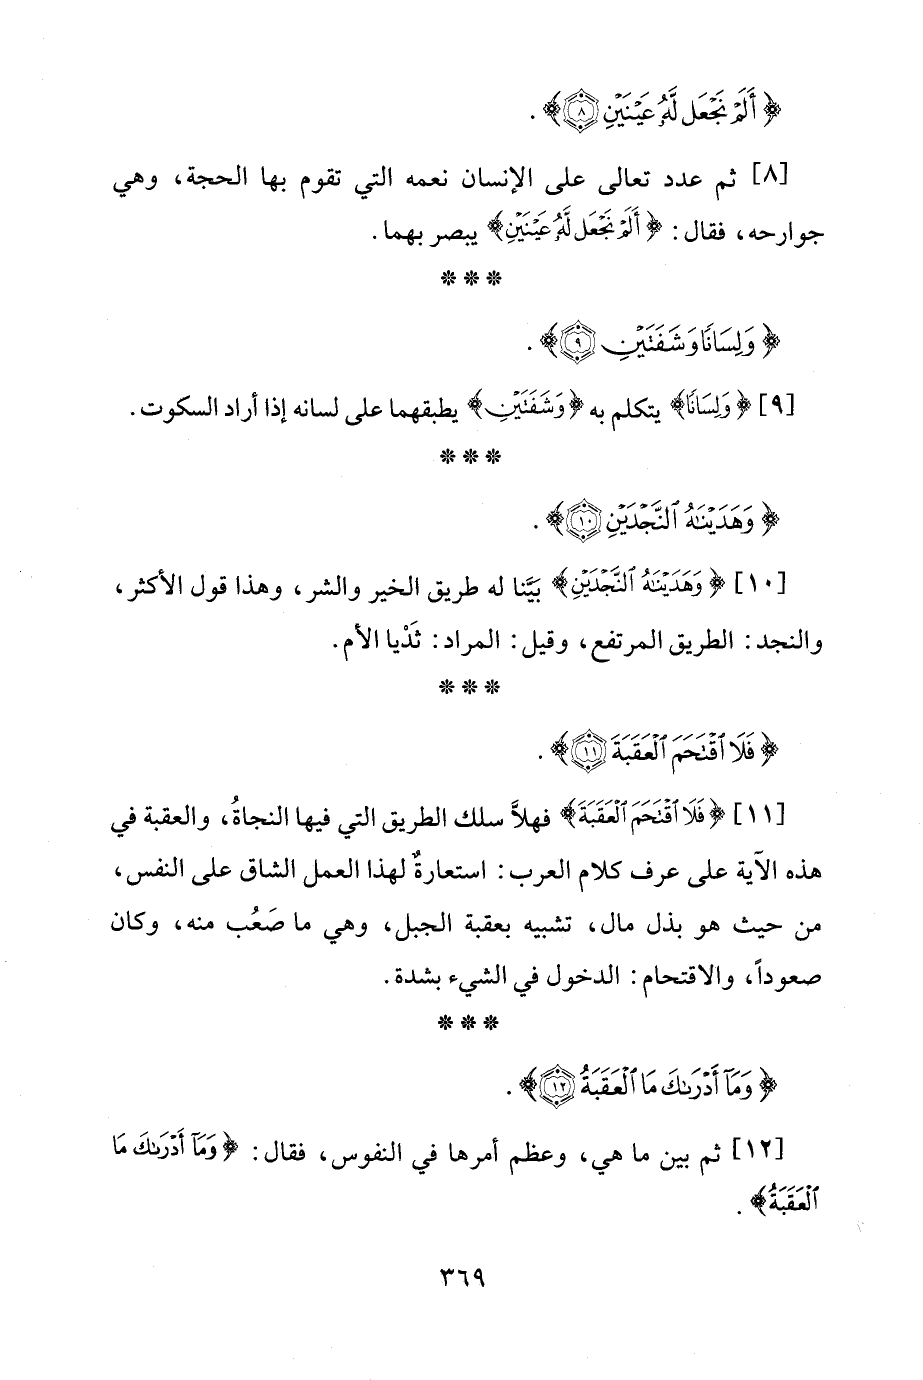 ﴿ أَلَمْ نَجْعَل لَّهُ عَيْنَيْنِ ٨ ﴾ .
[٨] ثم عدد تعالى على الإنسان نعمه التي تقوم بها الحجة، وهي
جوارحه، فقال: ﴿ أَلَمْ نَجْعَل لَّهُ عَيْنَيْنِ ﴾ يبصر بهما.
* * *
﴿ وَلِسَانًا وَشَفَتَيْنِ ٩ ﴾ .
[٩] ﴿ وَلِسَانًا ﴾ يتكلم به ﴿ وَشَفَتَيْنِ ﴾ يطبقهما على لسانه إذا أراد السكوت.
* * *
﴿ وَهَدَيْنَٰهُ ٱلنَّجْدَيْنِ ١٠ ﴾ .
[١٠] ﴿ وَهَدَيْنَٰهُ ٱلنَّجْدَيْنِ ﴾ بَيَّنا له طريق الخير والشر، وهذا قول الأكثر،
والنجد: الطريق المرتفع، وقيل: المراد: ثَدْيا الأم.
* * *
﴿ فَلَا ٱقْتَحَمَ ٱلْعَقَبَةَ ١١ ﴾ .
[١١] ﴿ فَلَا ٱقْتَحَمَ ٱلْعَقَبَةَ ﴾ فهلاَّ سلك الطريق التي فيها النجاةُ، والعقبة في
هذه الآية على عرف كلام العرب: استعارةٌ لهذا العمل الشاق على النفس،
من حيث هو بذل مال، تشبيه بعقبة الجبل، وهي ما صَعُب منه، وكان
صعوداً، والاقتحام: الدخول في الشيء بشدة.
* * *
﴿ وَمَآ أَدْرَىٰكَ مَا ٱلْعَقَبَةُ ١٢ ﴾ .
[١٢] ثم بين ما هي، وعظم أمرها في النفوس، فقال: ﴿ وَمَآ أَدْرَىٰكَ مَا
ٱلْعَقَبَةُ ﴾ .
٣٦٩